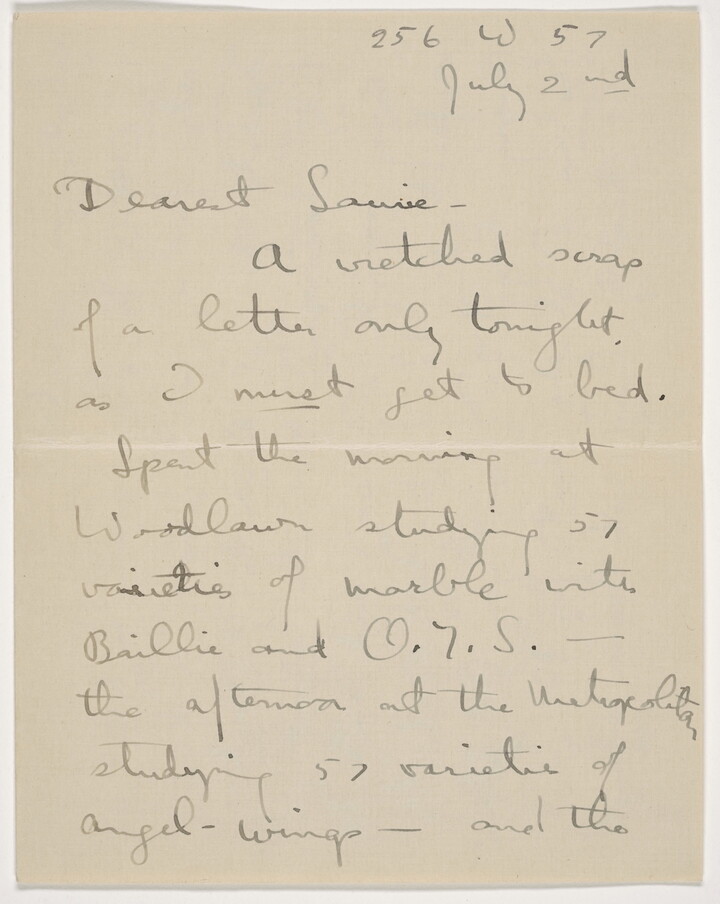 256 W 57
July 2nd
Dearest Laurie -
A wretched scrap
of a letter only tonight,
as I must get to bed.
Spent the morning at
Woodlawn studying 57
varieties of marble with
Baillie and O.Y.S. —
the afternoon at the Metropolitan
studying 57 varieties of
angel-wings — and the